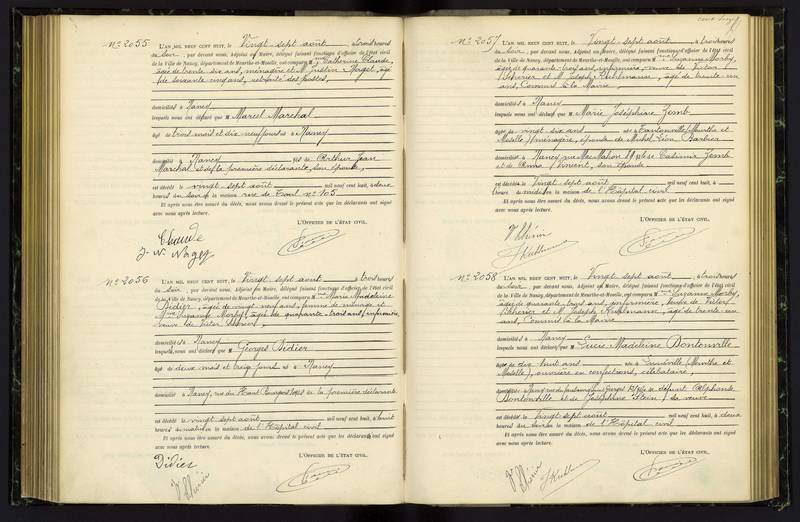 Nº 2055 L'AN MIL NEUF CENT HUIT, le Vingt sept août à trois heures
du soir, par devant nous, Adjoint au Maire, délégué faisant fonctions d'officier de l'état civil
de la Ville de Nancy, département de Meurthe-et-Moselle, ont comparu Mme Catherine Claude,
âgée de trente six ans, ménagère et M. Justin Nagel, âgé
de soixante cinq ans, retraité des postes,
domiciliés à Nancy
lesquels nous ont déclaré que M Marcel Marchal
âgé de trois mois et dix neuf jours né à Nancy
domicilié à Nancy fils de Arthur Jean
Marchal et de la première déclarante, son épouse,
est décédé le vingt sept août mil neuf cent huit, à deux
heures du soir en la maison rue de Toul nº 105
Et après nous être assuré du décès, nous avons dressé le présent acte que les déclarants ont signé
avec nous après lecture.
L'OFFICIER DE L'ÉTAT CIVIL,
Claude
Nº 2056 L'AN MIL NEUF CENT HUIT, le Vingt sept août à trois heures
du soir, par devant nous, Adjoint au Maire, délégué faisant fonctions d'officier de l'état civil
de la Ville de Nancy, département de Meurthe-et-Moselle, ont comparu Mme Marie Madeleine
Didier, âgée de vingt neuf ans, femme de ménage et
Mme Suzanne Morby, âgée de quarante trois ans, infirmière,
veuve de Victor
domiciliés à Nancy
lesquels nous ont déclaré que M Georges Didier
âgé de deux mois et treize jours né à Nancy
domicilié à Nancy, rue du Haut Bourgeois fils de la première déclarante
est décédé le vingt sept août mil neuf cent huit, à huit
heures du matin en la maison de l'Hôpital civil
Et après nous être assuré du décès, nous avons dressé le présent acte que les déclarants ont signé
avec nous après lecture.
L'OFFICIER DE L'ÉTAT CIVIL,
Didier
Nº 2057 L'AN MIL NEUF CENT HUIT, le Vingt sept août à trois heures
du soir, par devant nous, Adjoint au Maire, délégué faisant fonctions d'officier de l'état civil
de la Ville de Nancy, département de Meurthe-et-Moselle, ont comparu Mme Suzanne Morby,
âgée de quarante trois ans, infirmière, veuve de Victor
et M. Joseph Kuhlmann, âgé de trente un
ans, Commis à la Mairie
domiciliés à Nancy
lesquels nous ont déclaré que M Marie Joséphine Zemb
âgée de vingt six ans née à Tantonville (Meurthe et
Moselle) ménagère, épouse de Michel Léon Barbier
domiciliée à Nancy rue Mac Mahon fille de Casimir Zemb
et de Anna Vincent, son épouse
est décédée le vingt sept août mil neuf cent huit, à
heures en la maison de l'Hôpital civil
Et après nous être assuré du décès, nous avons dressé le présent acte que les déclarants ont signé
avec nous après lecture.
L'OFFICIER DE L'ÉTAT CIVIL,
Nº 2058 L'AN MIL NEUF CENT HUIT, le Vingt sept août à trois heures
du soir, par devant nous, Adjoint au Maire, délégué faisant fonctions d'officier de l'état civil
de la Ville de Nancy, département de Meurthe-et-Moselle, ont comparu Mme Suzanne Morby,
âgée de quarante trois ans, infirmière, veuve de Victor
et M. Joseph Kuhlmann, âgé de trente un
ans, Commis à la Mairie
domiciliés à Nancy
lesquels nous ont déclaré que M Lucie Madeleine Bontonville
âgée de dix huit ans née à Lunéville (Meurthe et
Moselle), ouvrière en confections, célibataire,
domiciliée à Nancy rue du faubourg fille de défunt Alphonse
Bontonville et de Joséphine Stein, sa veuve
est décédée le vingt sept août mil neuf cent huit, à deux
heures du soir en la maison de l'Hôpital civil
Et après nous être assuré du décès, nous avons dressé le présent acte que les déclarants ont signé
avec nous après lecture.
L'OFFICIER DE L'ÉTAT CIVIL,